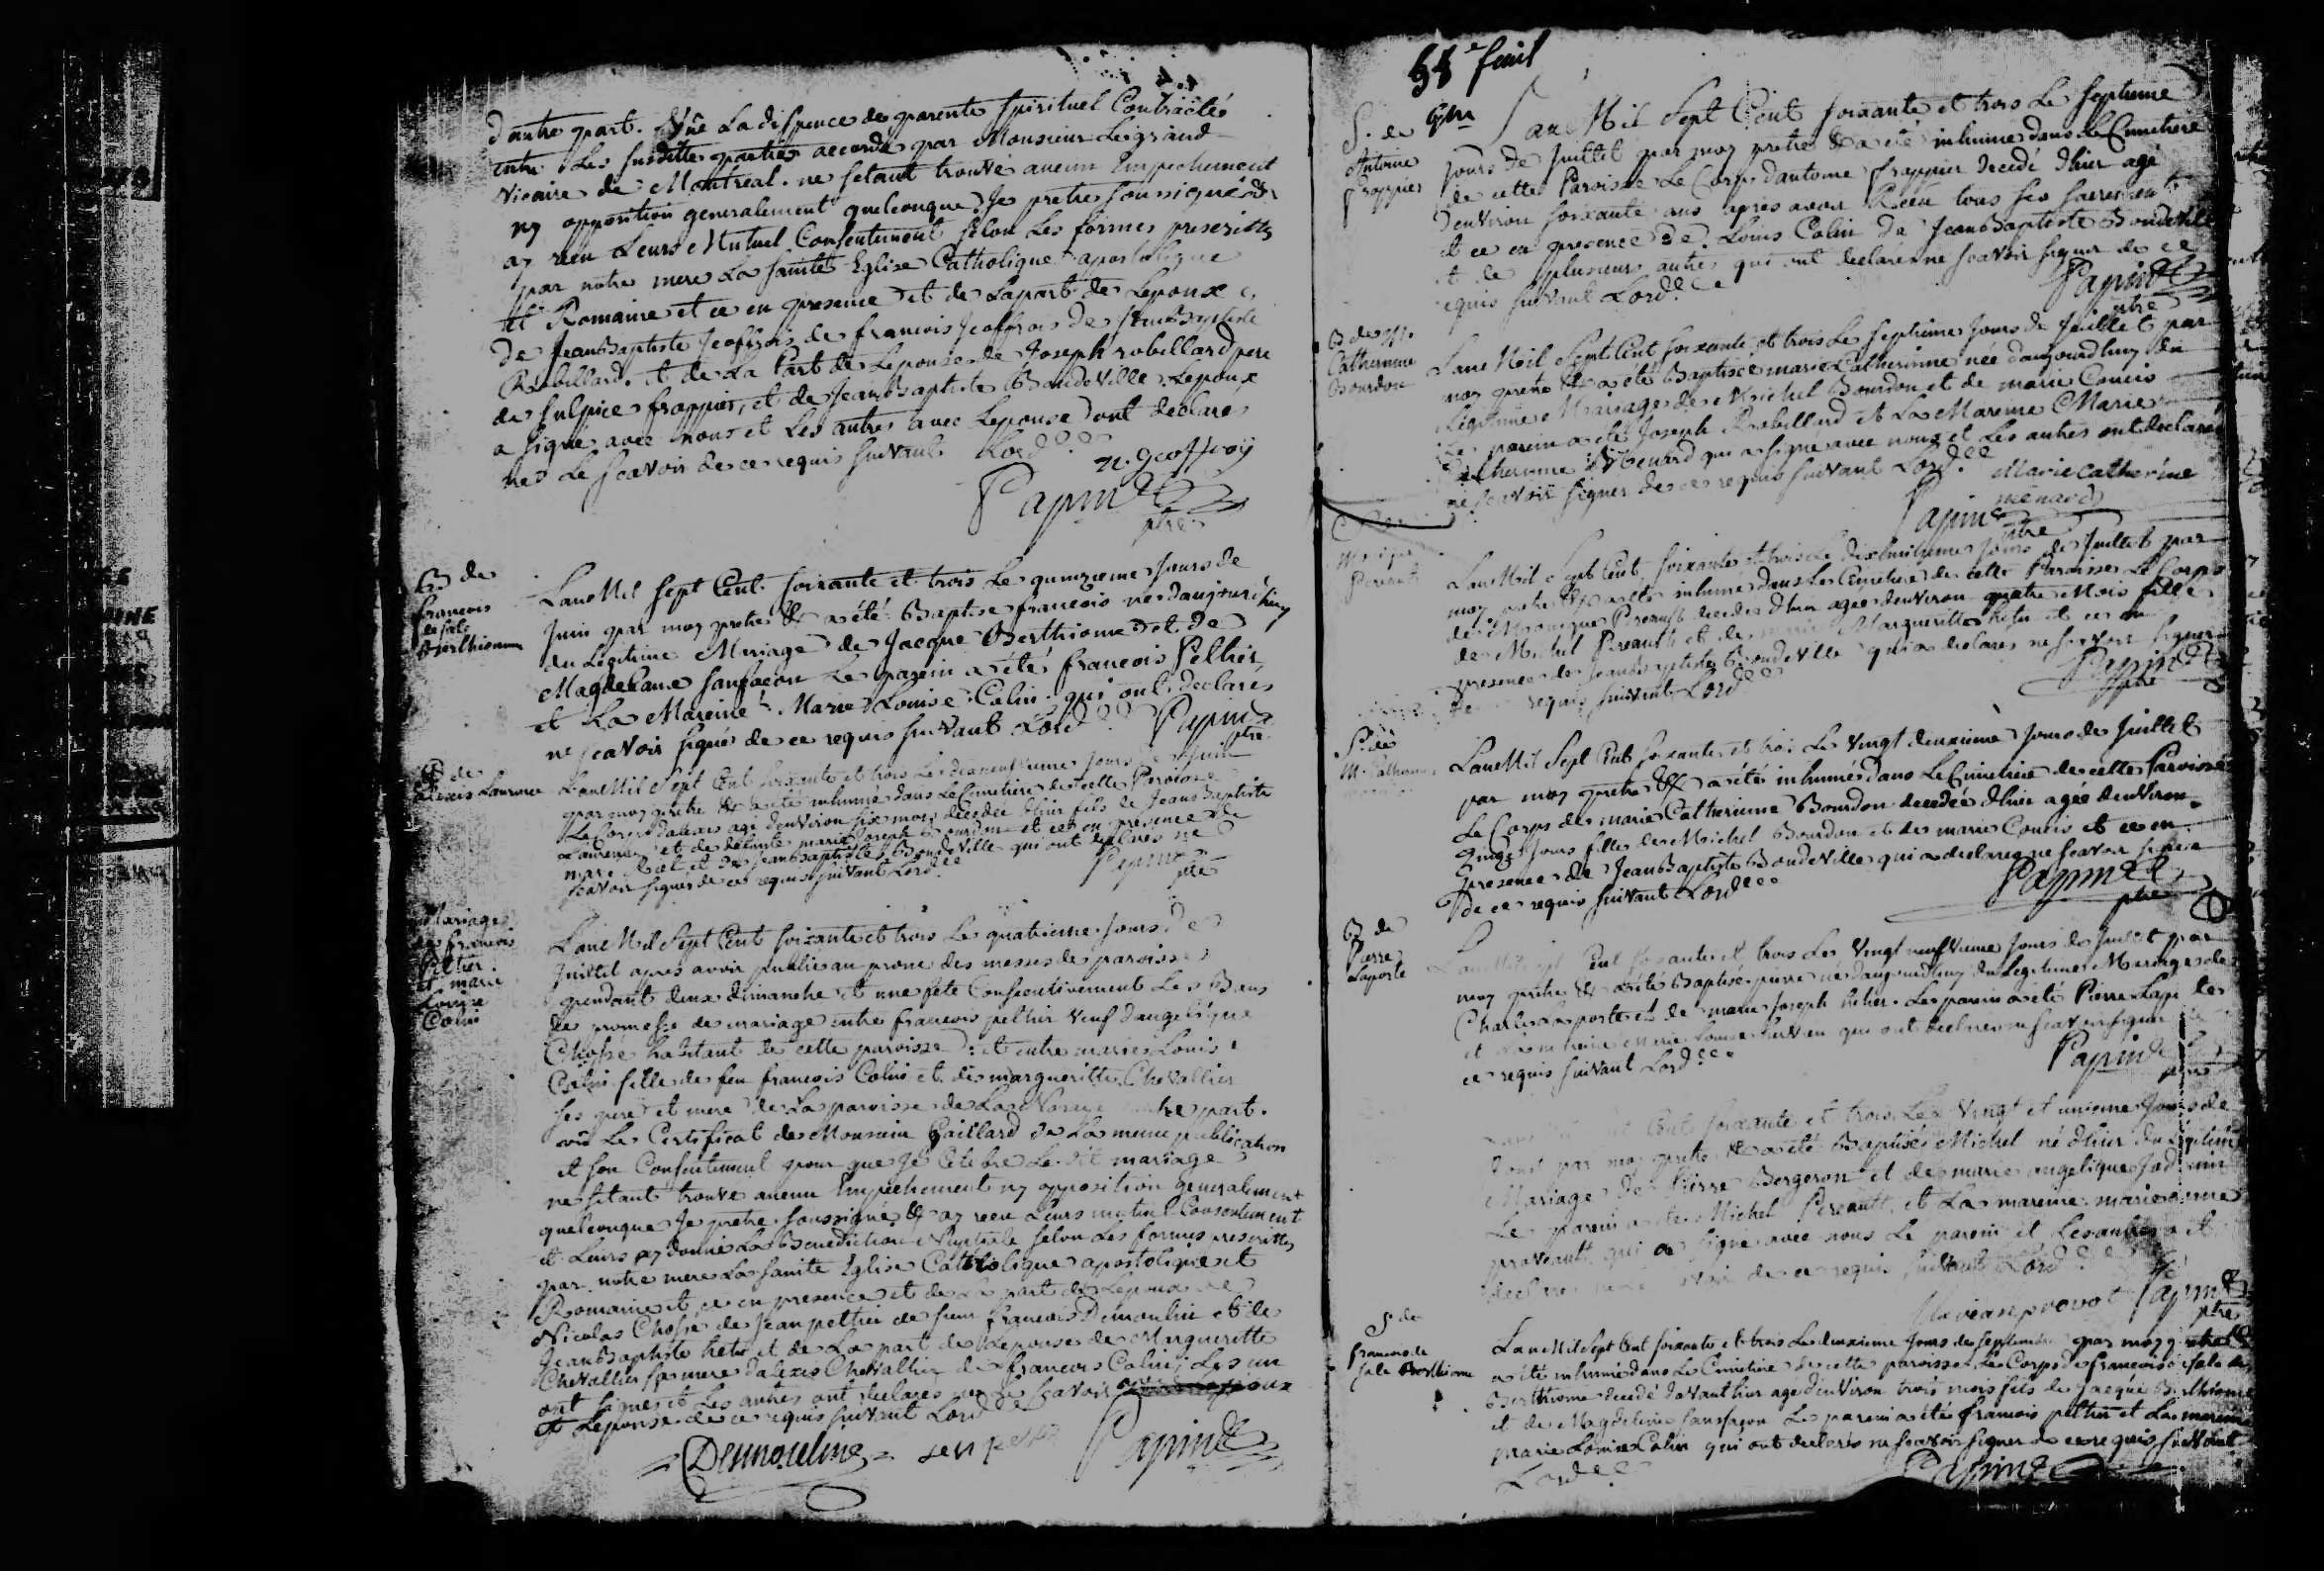 d'autre part. Vûe La dispence de parenté spirituel Contractés
entre Les susdittes parties accordé par Monsieur Legrand
Vicaire de Montreal. ne setant trouvé aucun Empechement
ny opposition generalement quelconque. Je pretre soussigné &
ay reçu Leurs Mutuel Consentement selon Les formes prescrittes
par notre mere La sainte Eglise Catholique apostolique
et Romaine et ce en presence et de Lapart de Lepoux
De JeanBaptiste Jeoffrois de francois Jeoffrois De JeanBaptiste
Robillard. et de La Part de Lepouse de Joseph robillard pere
de sulpice frappier, et de JeanBaptiste BoudeVille Lepoux
a signé avec nous et Les autres avec Lepouse ont declaré
ne Le scavoir de ce requis suivant Lord ee
n. geoffroy
Papin &
ptre
B de
francois
de sale
Berthiome
Lane Mil sept Cent soixante et trois Le quinzieme Jours de
Juin par moy pretre & a été Baptisé francois né daujourdhuy
du Legitime Mariage de Jacque Berthiome et de
Magdelaine sanfacon Le parein a été francois Peltier,
et La Mareine Marie Louise Colin qui ont declarés
ne scavoir signé de ce requis suivant Lord ee Papin &
ptre
S de
alexis Laurence
Lane Mil Sept Cent soixante et trois Le dixneufvieme Jours de Juin
par moy pretre & a été inhumé dans Le Cimetiere de cette Paroisse
Le Corps dalexis agé denviron six mois decedée dhier fils de JeanBaptiste
Laurence et de defunte marie Joseph Bourdon et ce en presence de
marc et de JeanBaptiste BoudeVille qui ont declarés ne
scavoir signés de ce requis suivant Lord ee Papin &
ptre
Mariage
de francois
Peltier
et marie
Louise
Colin
Lane Mil Sept Cent soixante et trois Le quatrieme Jours De
Juillet apres avoir publié au prone des messes de paroisse
pendant deux dimanche et une fete Consecutivement Les Bans
de promesse de mariage entre francois peltier Veuf dangelique
Chossé habitant de cette paroisse et entre marie Louise
Colin fille de feu francois Colin et de margueritte Chevallier
ses pere et mere de La paroisse de La part.
vû Le Certificat de Monsieur Gaillard de La meme publication
et son Consentement pour que Je Celebre Le dit mariage
ne setant trouvé aucun Empechement ny opposition generalement
quelconque Je pretre soussigné & ay recu Leurs mutuel Consentement
et Leurs ay donné La Benediction Nuptiale selon Les formes prescrittes
par notre mere La sainte Eglise Catholique apostolique et
Romaine et ce en presence et de La part de Lepoux de
Nicolas Chosse de Jean peltier de sieur francois Demoulin et de
JeanBaptiste hetu et de La part de Lepouse de Margueritte
Chevallier sa mere dalexis Chevallier de francois Colin; Les un
ont signés et Les autres ont declarés ne Le scavoir avec Lepoux
et Lepouse de ce requis suivant Lord ee
Desmouline Papin &
58e feuil
S. de
Antoine
frappier
Lane Mil Sept Cent soixante et trois Le septieme
Jours de Juillet par moy pretre & a été inhumé dans Le Cimetiere
de cette Paroisse Le Corps dantoine frappier decedé dhier agé
denviron soixante ans apres avoir Recu tous ses sacrement
et ce en presence de Louis Colin de JeanBaptiste BoudeVille
et de plusieurs autre qui ont declarés ne scavoir signer de ce
requis suivant Lord ee
Papin &
ptre
B de M.
Catherinne
Bourdon
Lane Mil Sept Cent soixante et trois Le septieme Jours de Juillet par
moy pretre & a été Baptisée marie Catherinne née daujourdhuy du
Legitime Mariage de Michel Bourdon et de marie Coucis
Le parein a été Joseph Robillard et La Mareine Marie
Catherinne Menard qui a signé avec nous et Les autres ont declarés
ne scavoir signer de ce requis suivant Lord ee Marie catherine
menard
Papin &
ptre
Lane Mil Sept Cent soixante et trois Le dixhuitieme Jours de Juillet par
moy pretre & a été inhumé dans Le Cimetiere de cette Paroisse Le Corps
de Monique Pereault decedée dhier agée denviron quatre Mois fille
de Michel Pereault et de Margueritte hetu et ce en
presence de JeanBaptiste BoudeVille qui a declarés ne scavoir signer
de requis suivant Lord ee Papin &
ptre
S. de
M. Catherinne
Lane Mil Sept Cent soixante et trois Le Vingt deuxieme Jours de Juillet
par moy pretre & a été inhumé dans Le Cimetiere de cette Paroisse
Le Corps de marie Catherinne Bourdon decedée dhier agée denviron
Jours fille de Michel Bourdon et de marie Coucis et ce en
presence de JeanBaptiste BoudeVille qui a declarés ne scavoir signer
de ce requis suivant Lord ee Papin &
ptre
B de
Pierre
Laporte
Lane Mil sept Cent soixante et trois Le Vingt neufvieme Jours de Juillet par
moy pretre & a été Baptisé pierre né daujourdhuy du Legitime Mariage de
Charles Laporte et de marie Joseph hetu. Le parein a été Pierre
et La mareine Marie Louise qui ont declarés ne scavoir signer
ce requis suivant Lord ee
Papin &
ptre
Cent soixante et trois Le Vingt et unieme Jours de
par moy pretre & a été Baptisé Michel né dhier du Legitime
Mariage de Pierre Bergeron et de marie angelique
Le parein a été Michel Pereault et La mareine marie anne
qui a signé avec nous Le parein et Les autres
de ce requis suivant Lord ee
Marie anne provot Papin &
ptre
S de
francois de
sale Berthiome
Lane Mil Sept Cent soixante et trois Le deuxieme Jours de septembre par moy pretre &
a été inhumé dans Le Cimetiere de cette paroisse Le Corps de francois de sale
Berthiome decedé davanthier agé denviron trois mois fils de Jacque Berthiome
et de Magdeleine sansfaçon Le parein a été francois peltier et La mareine
marie Louise Colin qui ont declarés ne scavoir signer de ce requis suivant
Lord ee
Papin &